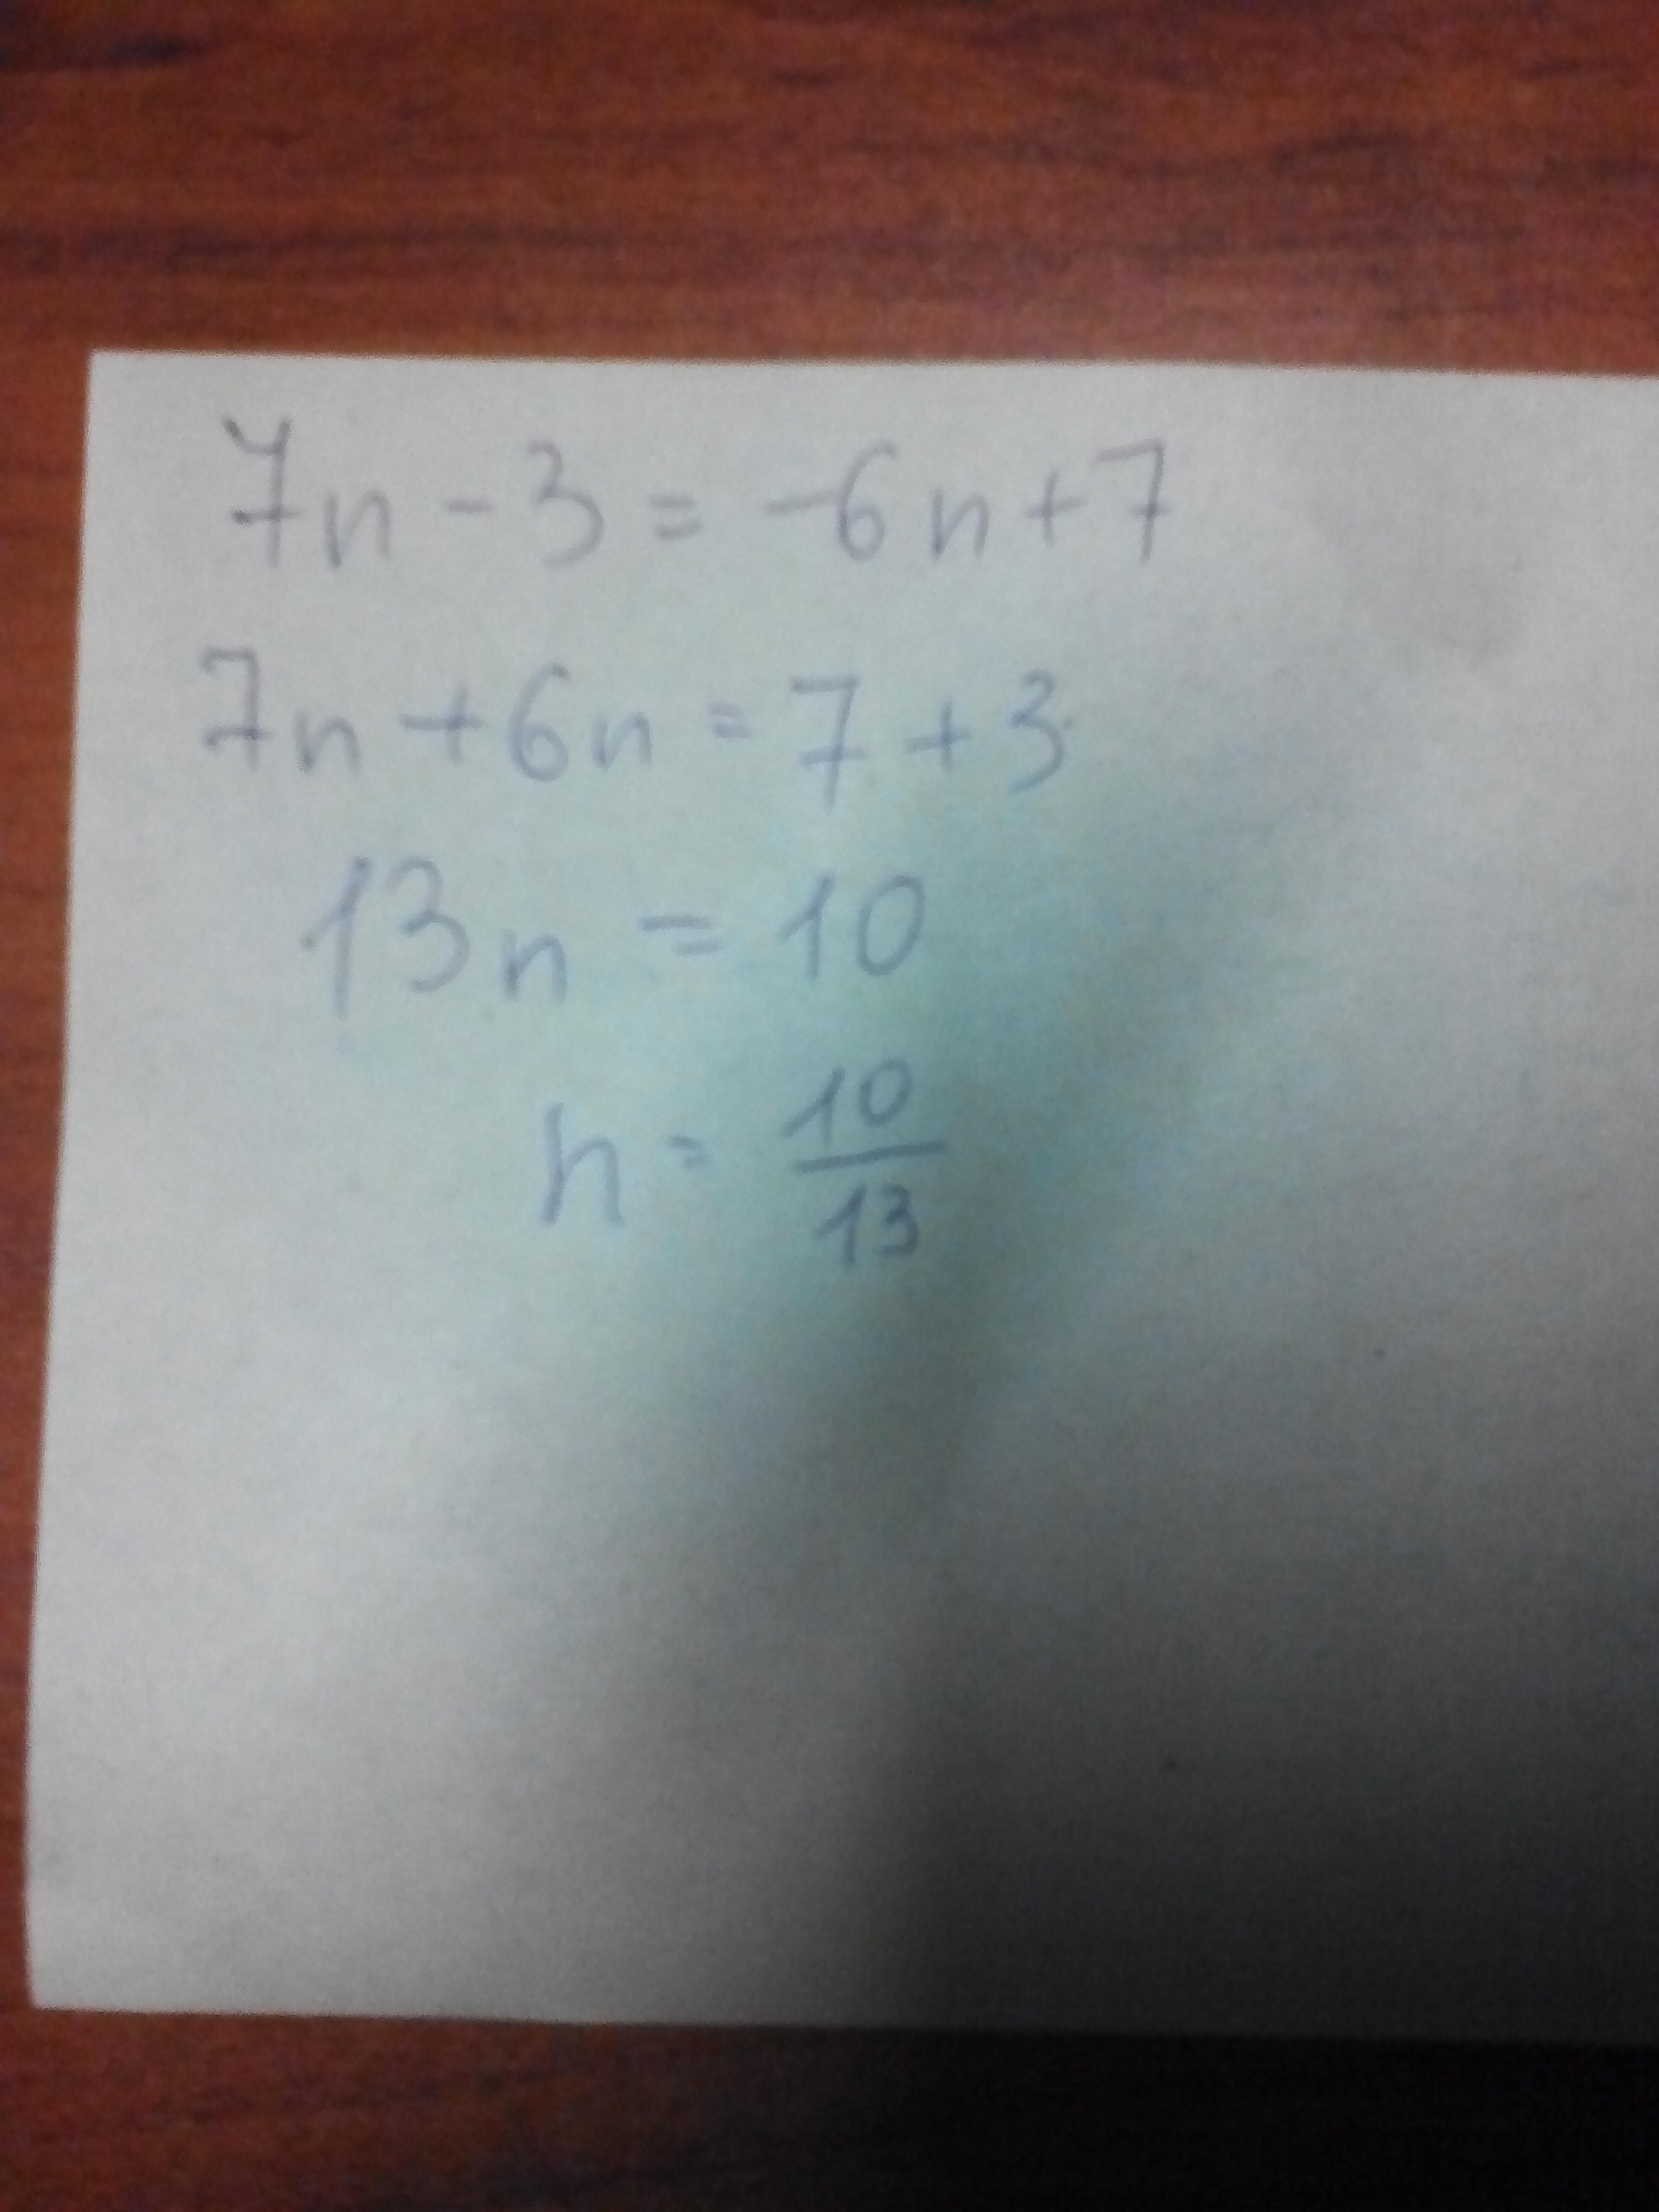 7n - 3 = -6n + 7
7n + 6n = 7 + 3
13n = 10
n = 10/13